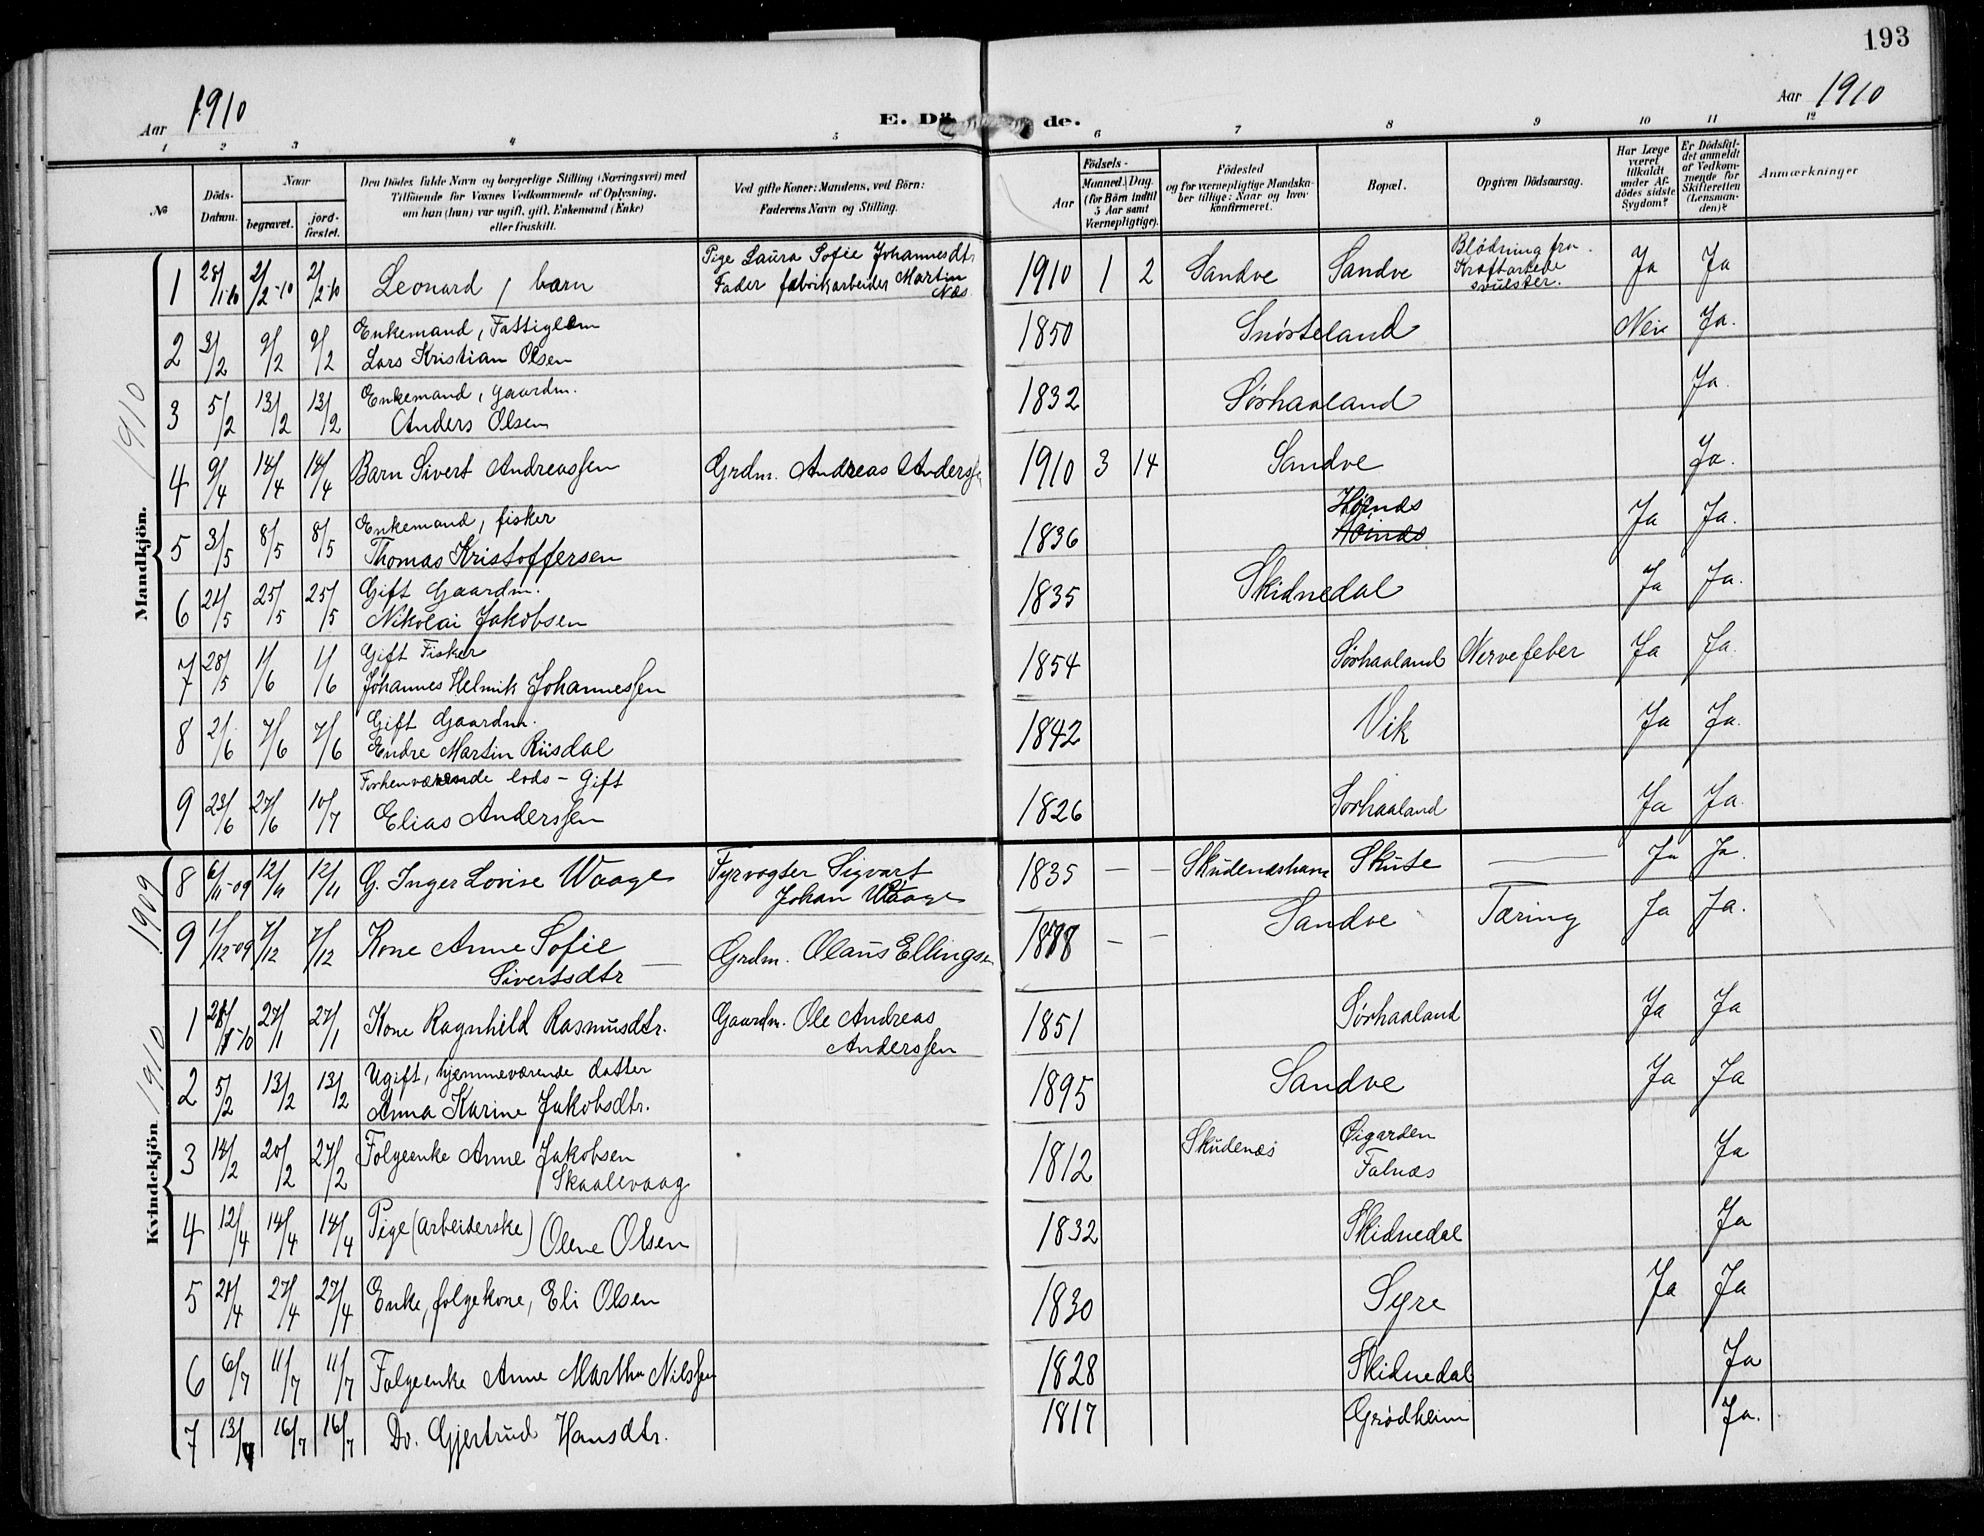 193
Aar 1910
E. Dö de.
Aar 1910
1 2 3 4 5 6 7 8 9 10 11 12
No
Döds-Datum.
Naar
begravet.
jord-fæstet.
Den Dödes fulde Navn og borgerlige Stilling (Næringsvei) med
Tilföiende for Voxnes Vedkommende af Oplysning,
om han (hun) var ugift, gift, Enkemand (Enke)
eller fraskilt.
Ved gifte Koner: Mandens, ved Börn:
Faderens Navn og Stilling.
Födsels-
Aar
Maaned. Dag
(for Börn indtil
5 Aar samt
Værnepligtige).
Födested
og for værnepligtige Mandska-
ber tillige: Naar og hvor
konfirmeret.
Bopæl.
Opgiven Dödsaarsag.
Har Læge
været
tilkaldt
under Af-
dödes sidste
Sygdom?
Er Dödsfal-
det anmeldt
af Vedkom-
mende for
Skifteretten
(Lensman-
den)?
Anmærkninger
Mandkjön. 1910
1 28/1-10 2/2-10 2/2-10 Leonard, barn Pige Laura Sofie Johannesdtr Fader fabrikarbeider Martin Næs 1910 1 2 Sandve Sandve Blødning fra Kræftartede svulster. Ja Ja
2 3/2 9/2 9/2 Enkemand, Fattiglem Lars Kristian Olsen 1850 Snørteland Nei Ja.
3 5/2 13/2 13/2 Enkemand, Gaardm. Anders Olsen 1832 Sørhaaland Ja.
4 9/4 14/4 14/4 Barn Sivert Andreassen Grdm. Andreas Anderss 1910 3 14 Sandve Ja.
5 3/5 8/5 8/5 Enkemand, fisker Thomas Kristoffersen 1836 Høinæs Ja Ja.
6 21/5 25/5 25/5 Gift Gaardm. Nikolai Jakobsen 1835 Skidnedal Ja Ja.
7 28/5 1/6 1/6 Gift Fisker Johannes Helmik Johannessen 1854 Sørhaaland Nervefeber Ja Ja.
8 2/6 7/6 7/6 Gift Gaardm. Endre Martin Riisdal 1842 Vik Ja Ja.
9 23/6 27/6 10/7 Forhenværende lods - Gift Elias Anderssen 1826 Sørhaaland Ja Ja.
Kvindekjön. 1910 1909
8 6/11-09 12/11 12/11 G. Inger Lovise Waage Fyrvogter Sigvart Johan Waage 1835 — — Skudeneshavn Skute — Ja Ja.
9 1/12-09 7/12 7/12 Kone Anne Sofie Sivertsdtr — Grdm. Olaus Ellingsen 1878 — — Sandve Tæring Ja Ja.
1 21/1-10 27/1 27/1 Kone Ragnhild Rasmusdtr. Gaardm. Ole Andreas Anderssen 1851 Sørhaaland Ja Ja
2 5/2 13/2 13/2 Ugift, hjemmeværende datter Anna Karine Jakobsdtr. 1895 Sandve Ja Ja
3 14/2 20/2 27/2 Folgeenke Anne Jakobsen Skaalevaag 1812 Skudenes Øigarden Falnæs Ja
4 12/4 14/4 14/4 Pige (arbeiderske) Olene Olsen 1832 Skidnedal Ja
5 21/4 27/4 27/4 Enke, folgekone, Eli Olsen 1830 Syre Ja Ja
6 6/7 11/7 11/7 Folgeenke Anne Martha Nilssen 1828 Skidnedal Ja
7 13/7 16/7 16/7 Do. Gjertrud Hansdtr. 1817 Grødheim Ja.